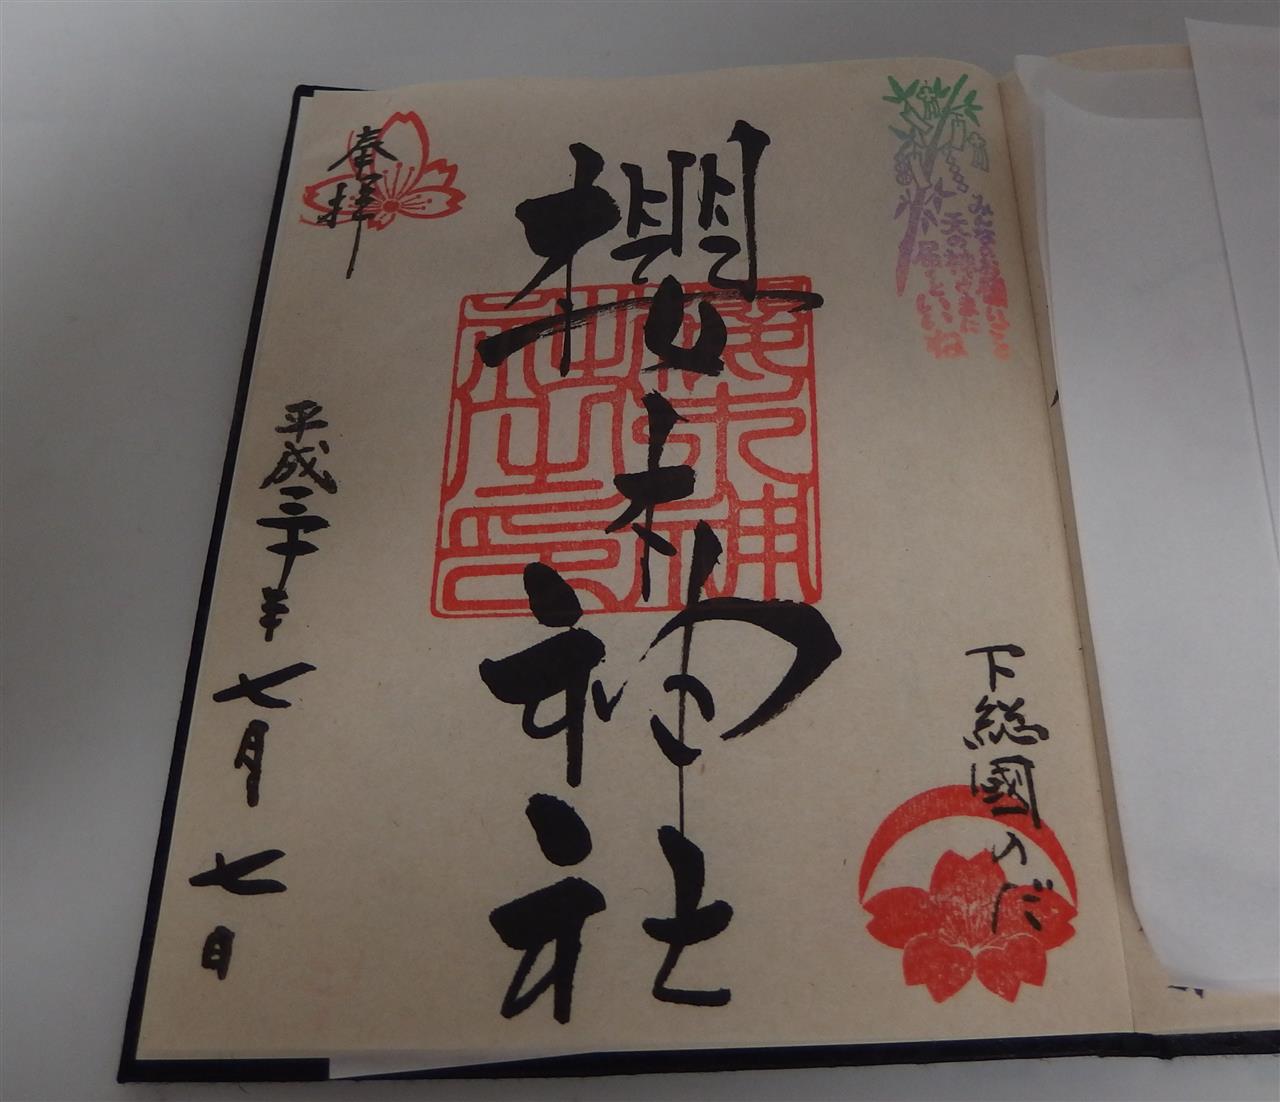 みんなの願いごと
天の神さまに
届くといいね
下総國のだ
櫻木神社
櫻木神
社之印
奉拝
平成三十年七月七日